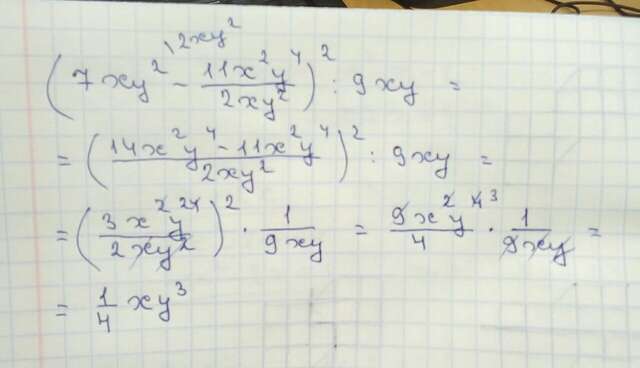 (7xy² \2xy² - 11x²y⁴/2xy²)² : 9xy =
= (14x²y⁴ - 11x²y⁴/2xy²)² : 9xy =
= (3x²y²⁴/2xy²)² · 1/9xy = 9x²y⁴³/4 · 1/9xy =
= 1/4 xy³